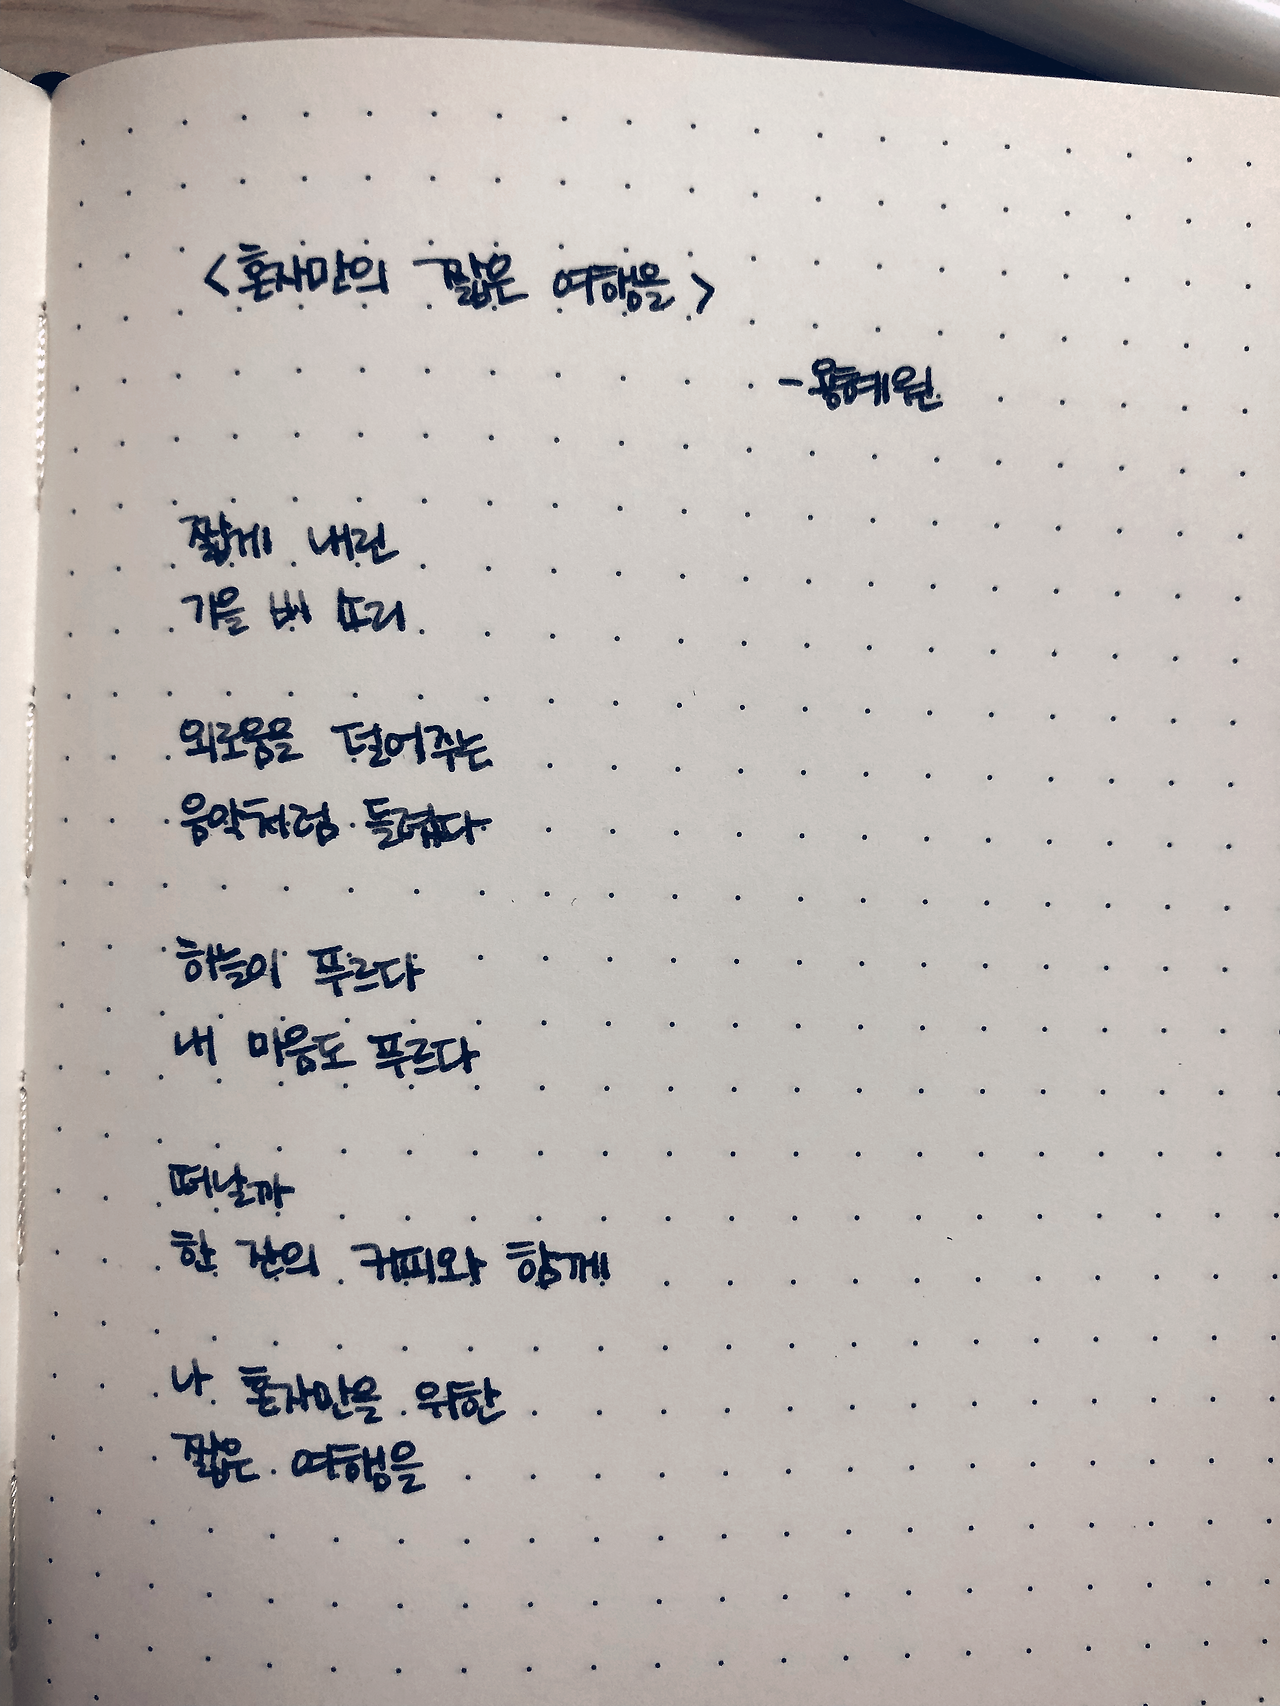 <혼자만의 짧은 여행을>
-용혜원
짧게 내린
가을 비 소리
외로움을 덜어주는
음악처럼 들렸다
하늘이 푸르다
내 마음도 푸르다
떠날까
한 잔의 커피와 함께
나 혼자만을 위한
짧은 여행을